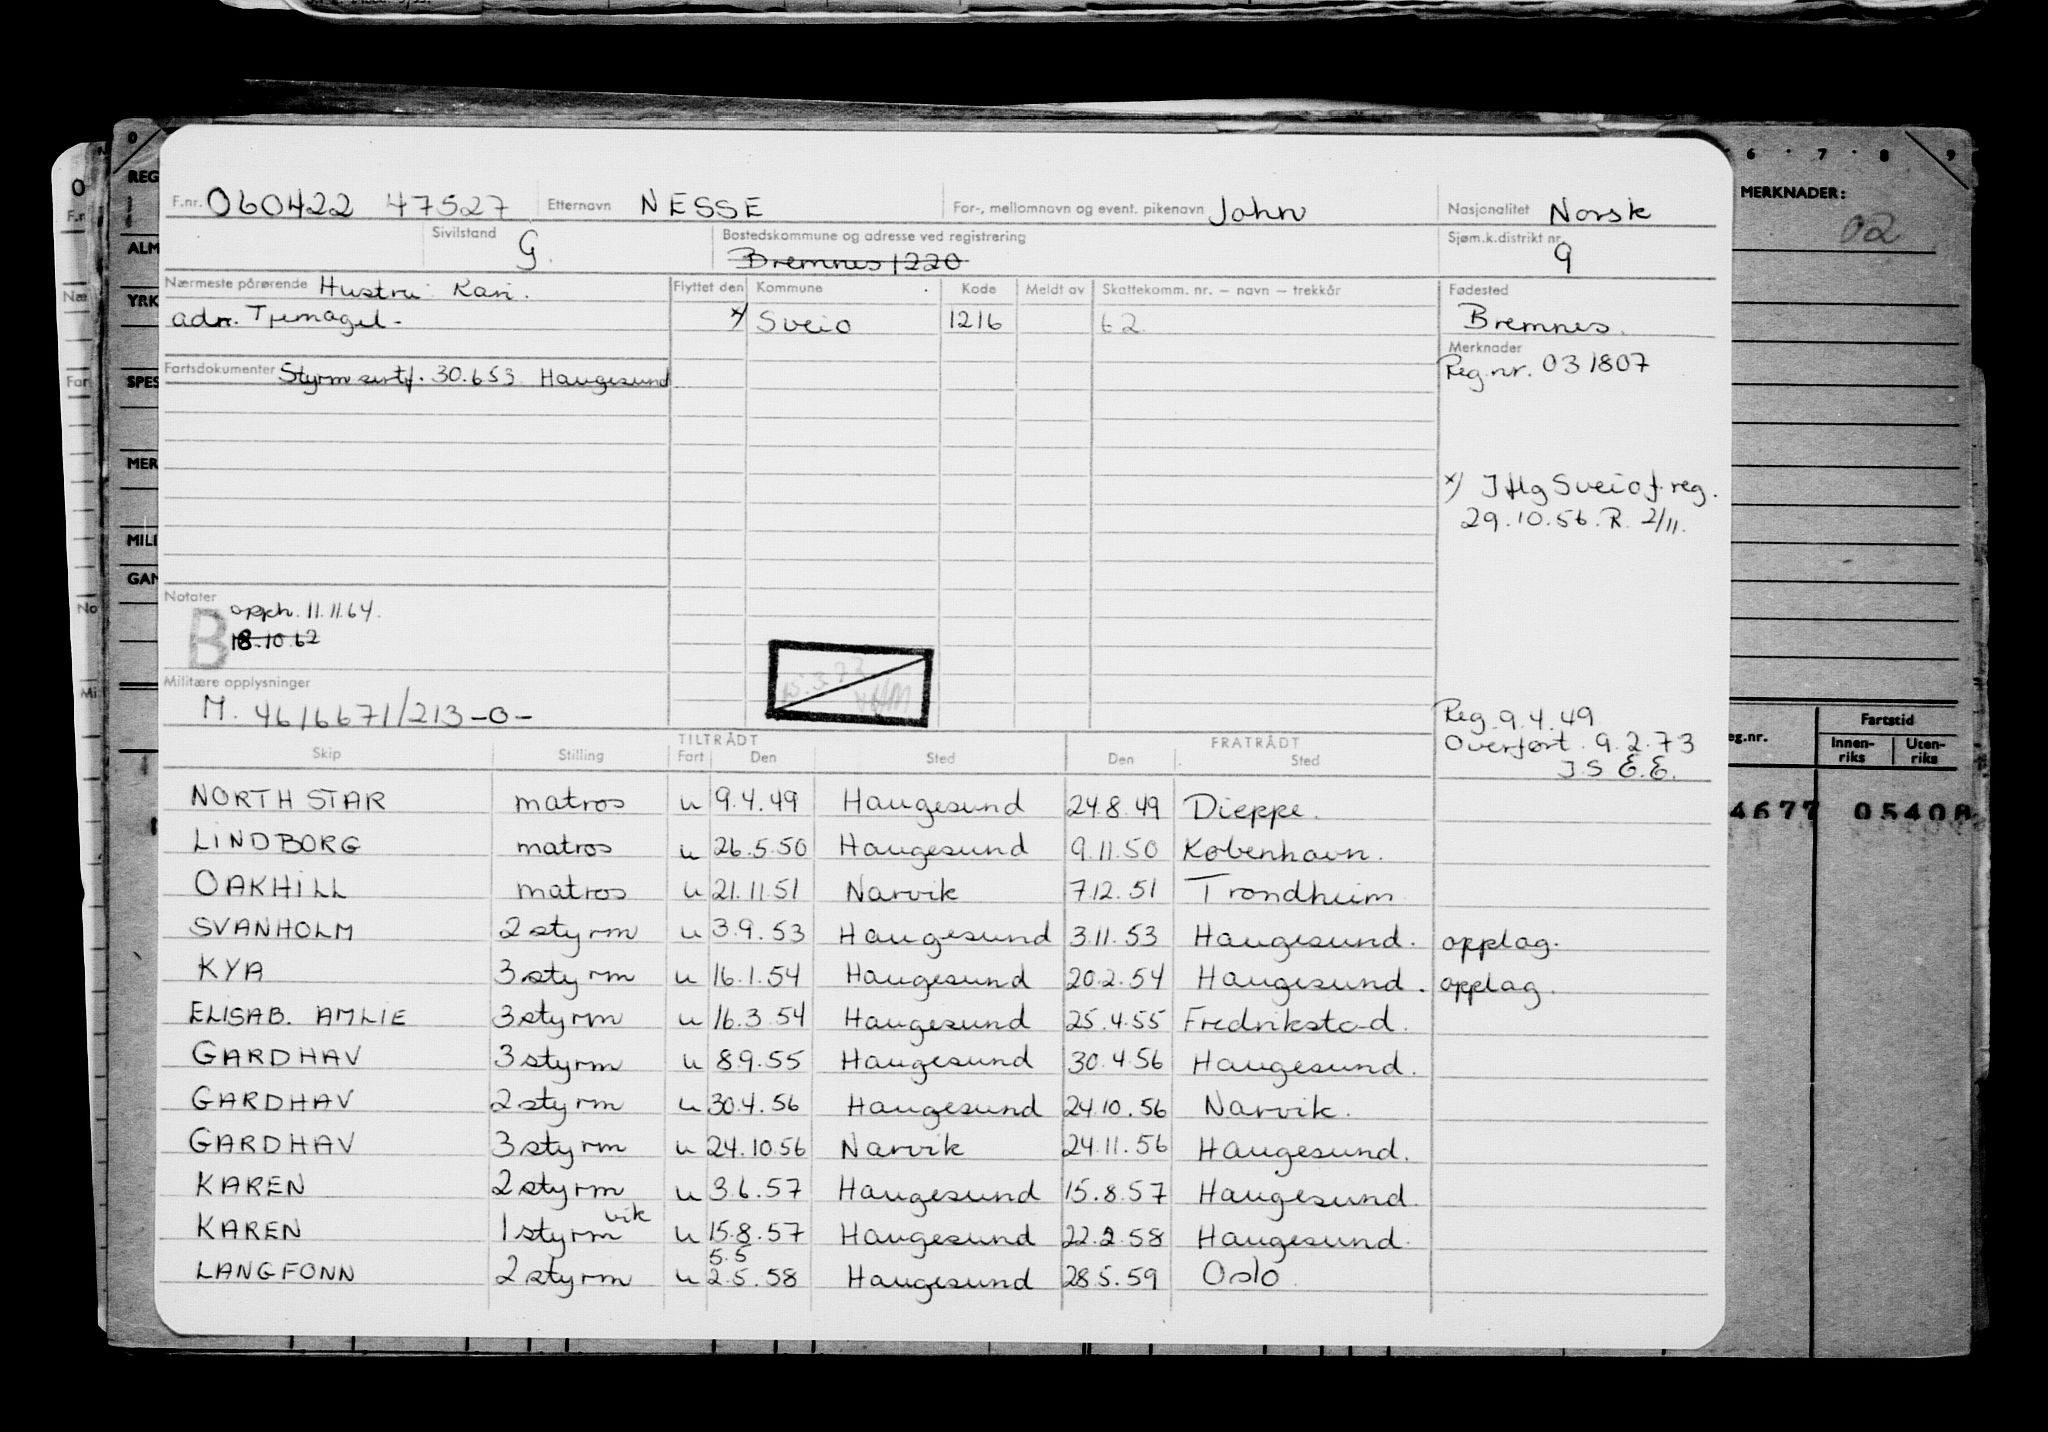 F.nr. 060422 47527 Etternavn NESSE For-, mellomnavn og event. pikenavn John Nasjonalitet Norsk
Sivilstand G. Bostedskommune og adresse ved registrering Bremnes 1220 Sjøm.k.distrikt nr. 9
Nærmeste pårørende Hustru Kari. Flyttet den Kommune Kode Meldt av Skattekomm. nr. – navn – trekkår Fødested
adr. Tjernagel- x) Sveio 1216 62 Bremnes.
Merknader
Fartsdokumenter Styrm sertf. 30.653 Haugesund Reg.nr. 031807
x) Iflg Sveio f.reg.
29.10.56. R. 2/11.
Notater
B opph. 11.11.64.
18.10.62
Militære opplysninger
M. 4616671/213-0-
Reg. 9.4.49
Overført. 9.2.73
I.S E.E.
TILTRÅDT FRATRÅDT
Skip Stilling Fart Den Sted Den Sted
NORTH STAR matros u 9.4.49 Haugesund 24.8.49 Dieppe.
LINDBORG matros u 26.5.50 Haugesund 9.11.50 København.
OAKHILL matros u 21.11.51 Narvik 7.12.51 Trondheim
SVANHOLM 2 styrm u 3.9.53 Haugesund 3.11.53 Haugesund. opplag.
KYA 3 styrm u 16.1.54 Haugesund 20.2.54 Haugesund. opplag.
ELISAB. AMLIE 3 styrm u 16.3.54 Haugesund 25.4.55 Fredrikstad.
GARDHAV 3 styrm u 8.9.55 Haugesund 30.4.56 Haugesund.
GARDHAV 2 styrm u 30.4.56 Haugesund 24.10.56 Narvik.
GARDHAV 3 styrm u 24.10.56 Narvik 24.11.56 Haugesund.
KAREN 2 styrm u 3.6.57 Haugesund 15.8.57 Haugesund.
KAREN 1 styrm vik u 15.8.57 Haugesund 22.2.58 Haugesund.
5.5
LANGFONN 2 styrm u 2.5.58 Haugesund 28.5.59 Oslo.
0
F.r
Næ
Far
No
Mi
0
REG
ALM
YRK
SPES
MER
MILI
GAN
6 7 8 9
MERKNADER:
02
eg.nr. Fartstid
Innen-riks Uten-riks
4677 05408